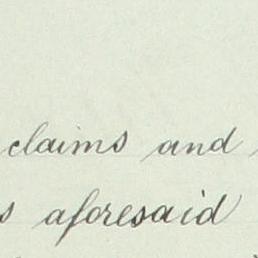 claims and
s aforesaid